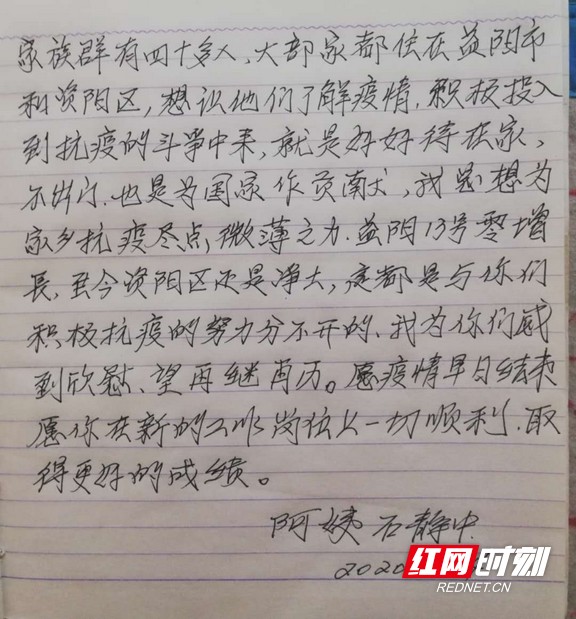 家族群有四十多人，大部家都住在益阳市
和资阳区，想让他们了解疫情，积极投入
到抗疫的斗争中来，就是好好待在家，
不出门．也是为国家作贡献，我思想为
家乡抗疫尽点微薄之力．益阳13号零增
长，至今资阳区还是净土，这都是与你们
积极抗疫的努力分不开的．我为你们感
到欣慰、望再继肖历。愿疫情早日结束
愿你在新的工作岗位上一切顺利．取
得更好的成绩。
阿姨 石静中
2020
红网时刻
REDNET.CN